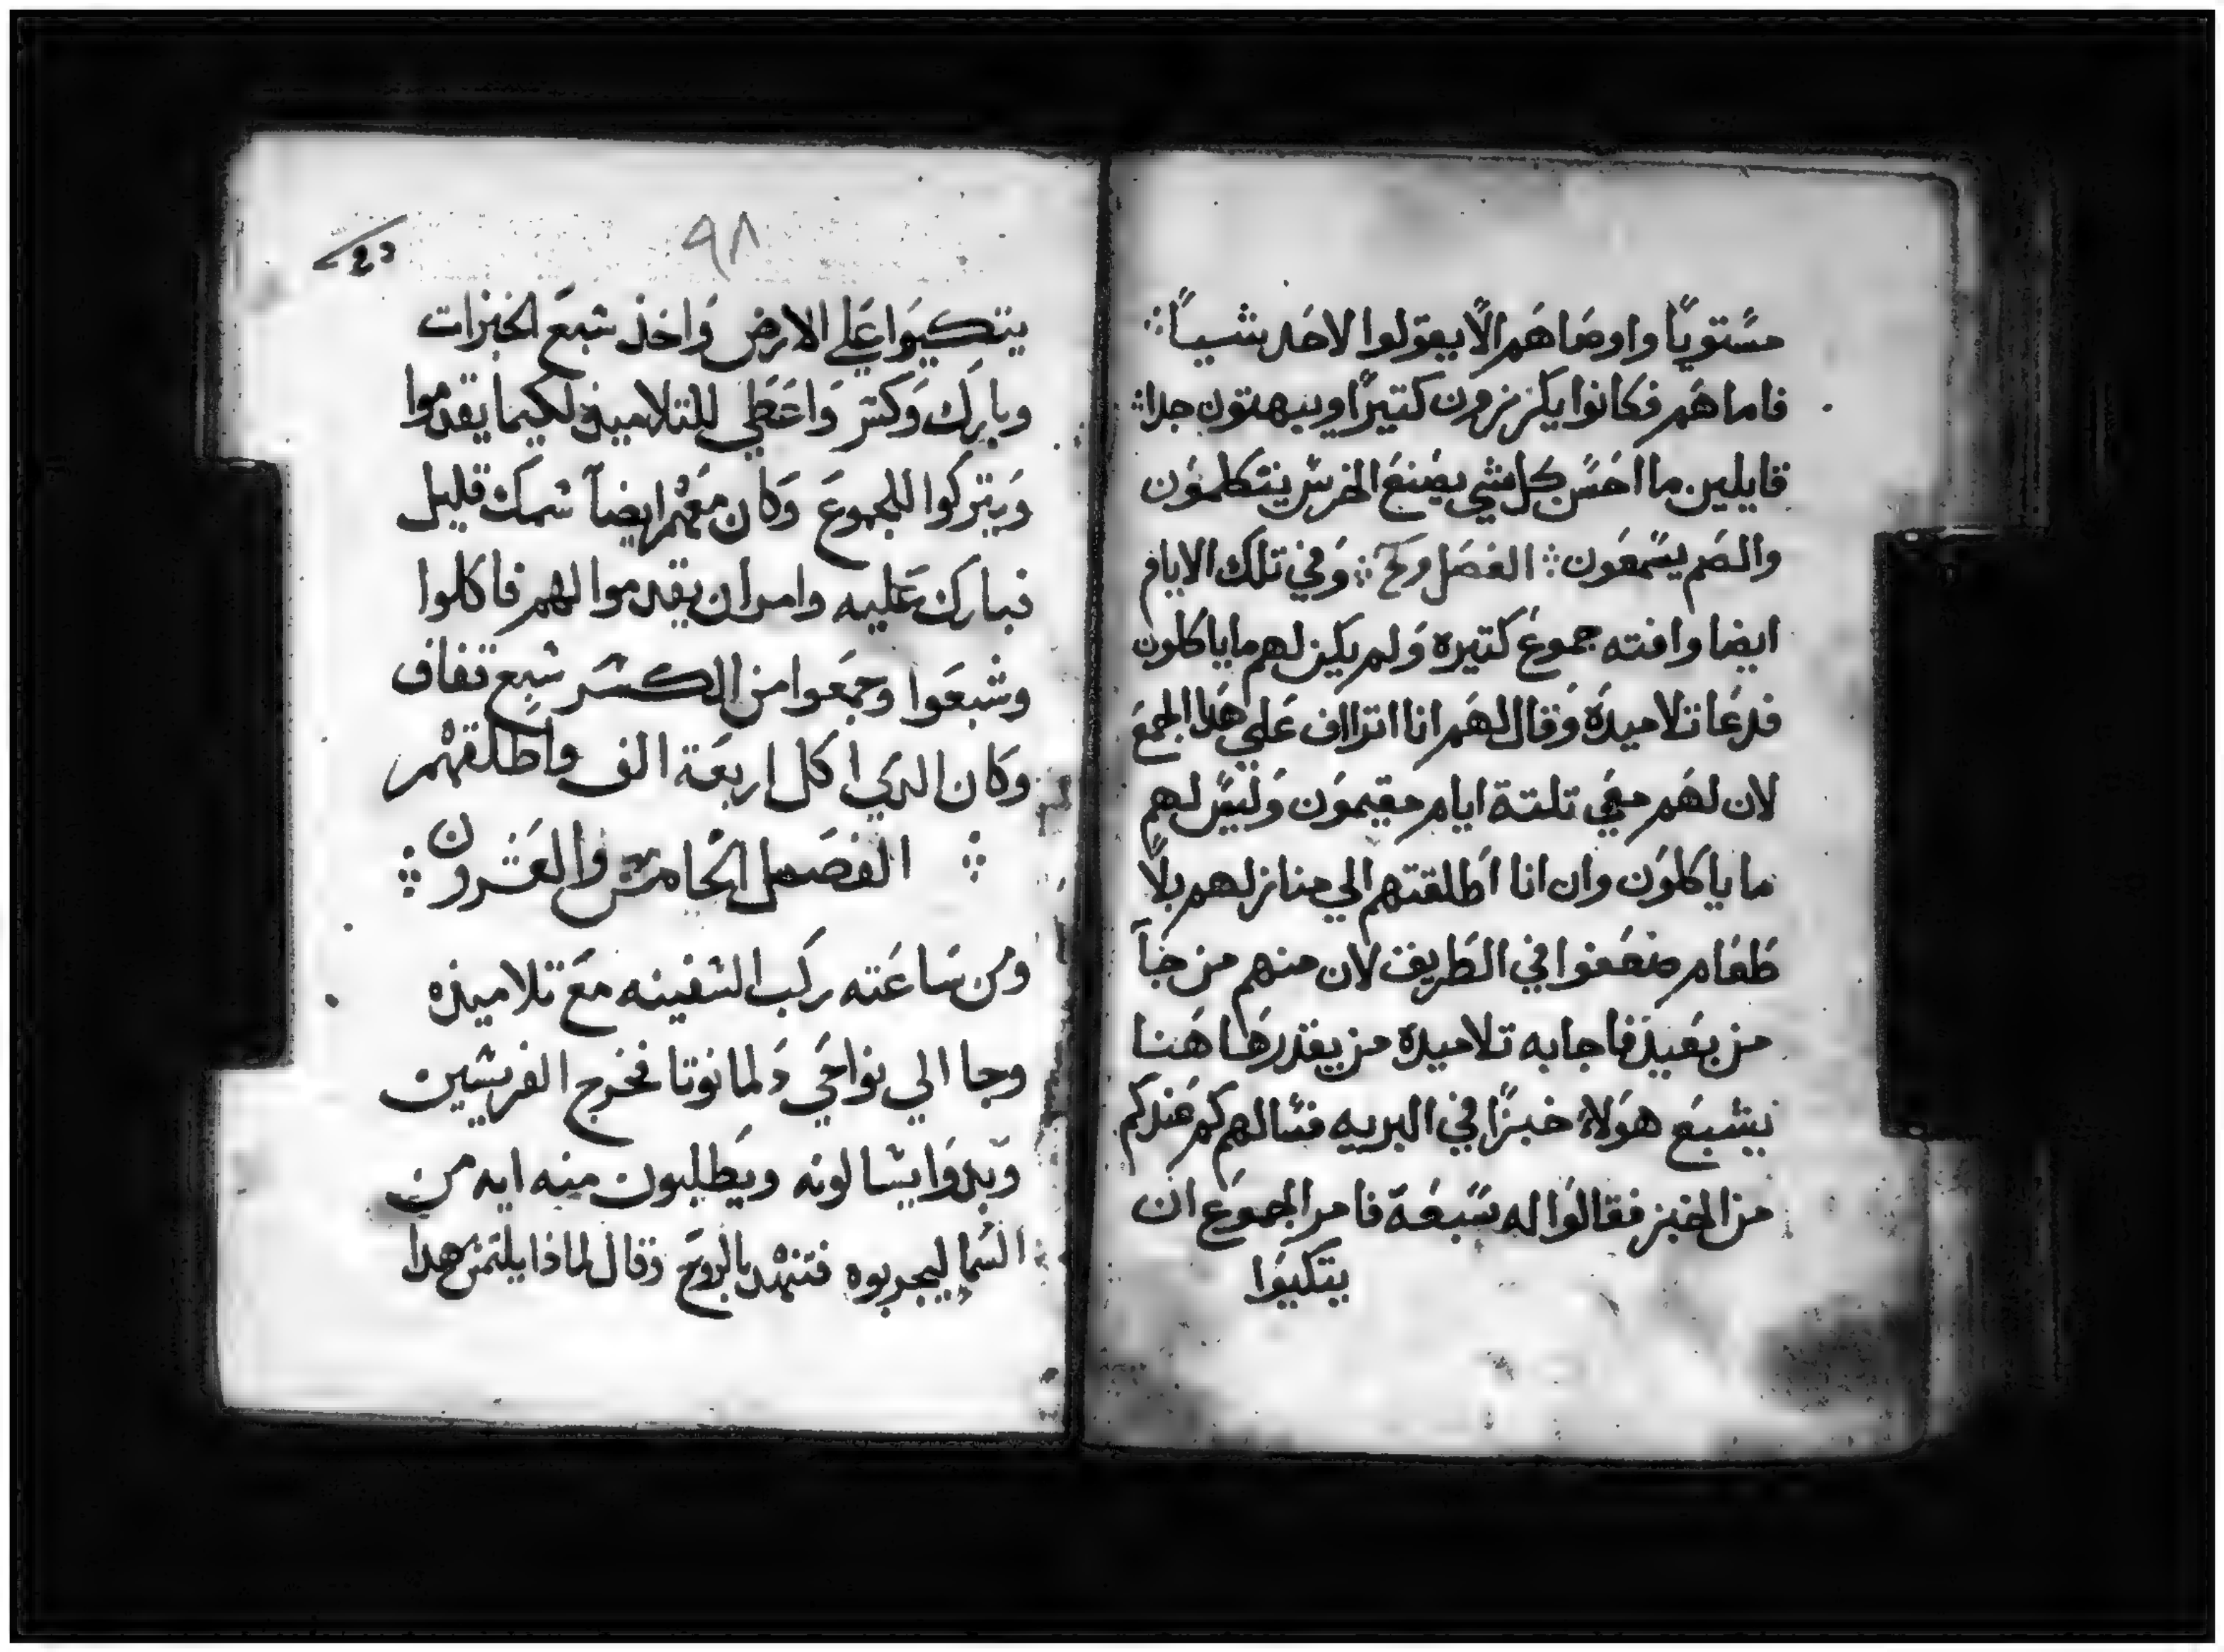 مستويًا واوصاهم الّا يقولوا لاحد شياً ؞
فاما هم فكانوا يكرزون كتيرًا ويبهتون جدا ؞
قايلين ما احسن كل شي يصنع الخرس يتكلمون
والصم يسمعون ؞ الفصل ؞ وفي تلك الايام
ايضا وافته جموع كتيره ولم يكن لهم ما ياكلون
فدعا تلاميده وقال لهم انا اتراف علي هدا الجمع
لان لهم معي تلتة ايام مقيمون وليس لهم
ما ياكلون وان انا اطلقتهم الي منازلهم بلا
طعام ضعفوا في الطريق لان منهم من جآ
من بعيد فاجابه تلاميده من يقدر هاهنا
يشبع هولاء خبزًا في البريه فسالهم كم عندكم
من الخبز فقالوا له سبعة فامر الجموع ان
يتكيوا
٩٨
يتكيوا علي الارض واخذ سبع الخبزات
وبارك وكسر واعطي للتلاميذ لكيما يقدموا
ويتركوا للجموع وكان معهم ايضاً سمك قليل
فبارك عليه وامر ان يقدموا لهم فاكلوا
وشبعوا وجمعوا من الكسر سبع قفاف
وكان الدي اكل اربعة الف واطلقهم
؞ الفصل الخامس والعشرون ؞
ومن ساعته ركب السفينه مع تلاميذه
وجا الي نواحي دلمانوتا فخرج الفريسين
وبدوا يسالونه ويطلبون منه ايه من
السما ليجربوه فتنهد بالروح وقال لماذا يلتمس هدا